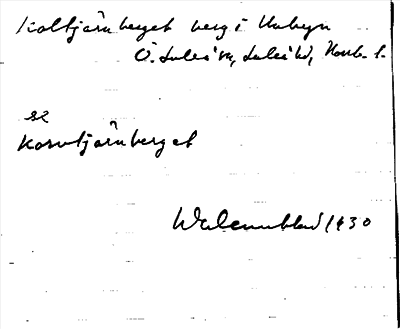 Koltjärnberget berg i Unbyn
Ö. Luleå sn, Luleå hd, Norrb. l.
se
Korvtjärnberget
Wolcmublad 1930